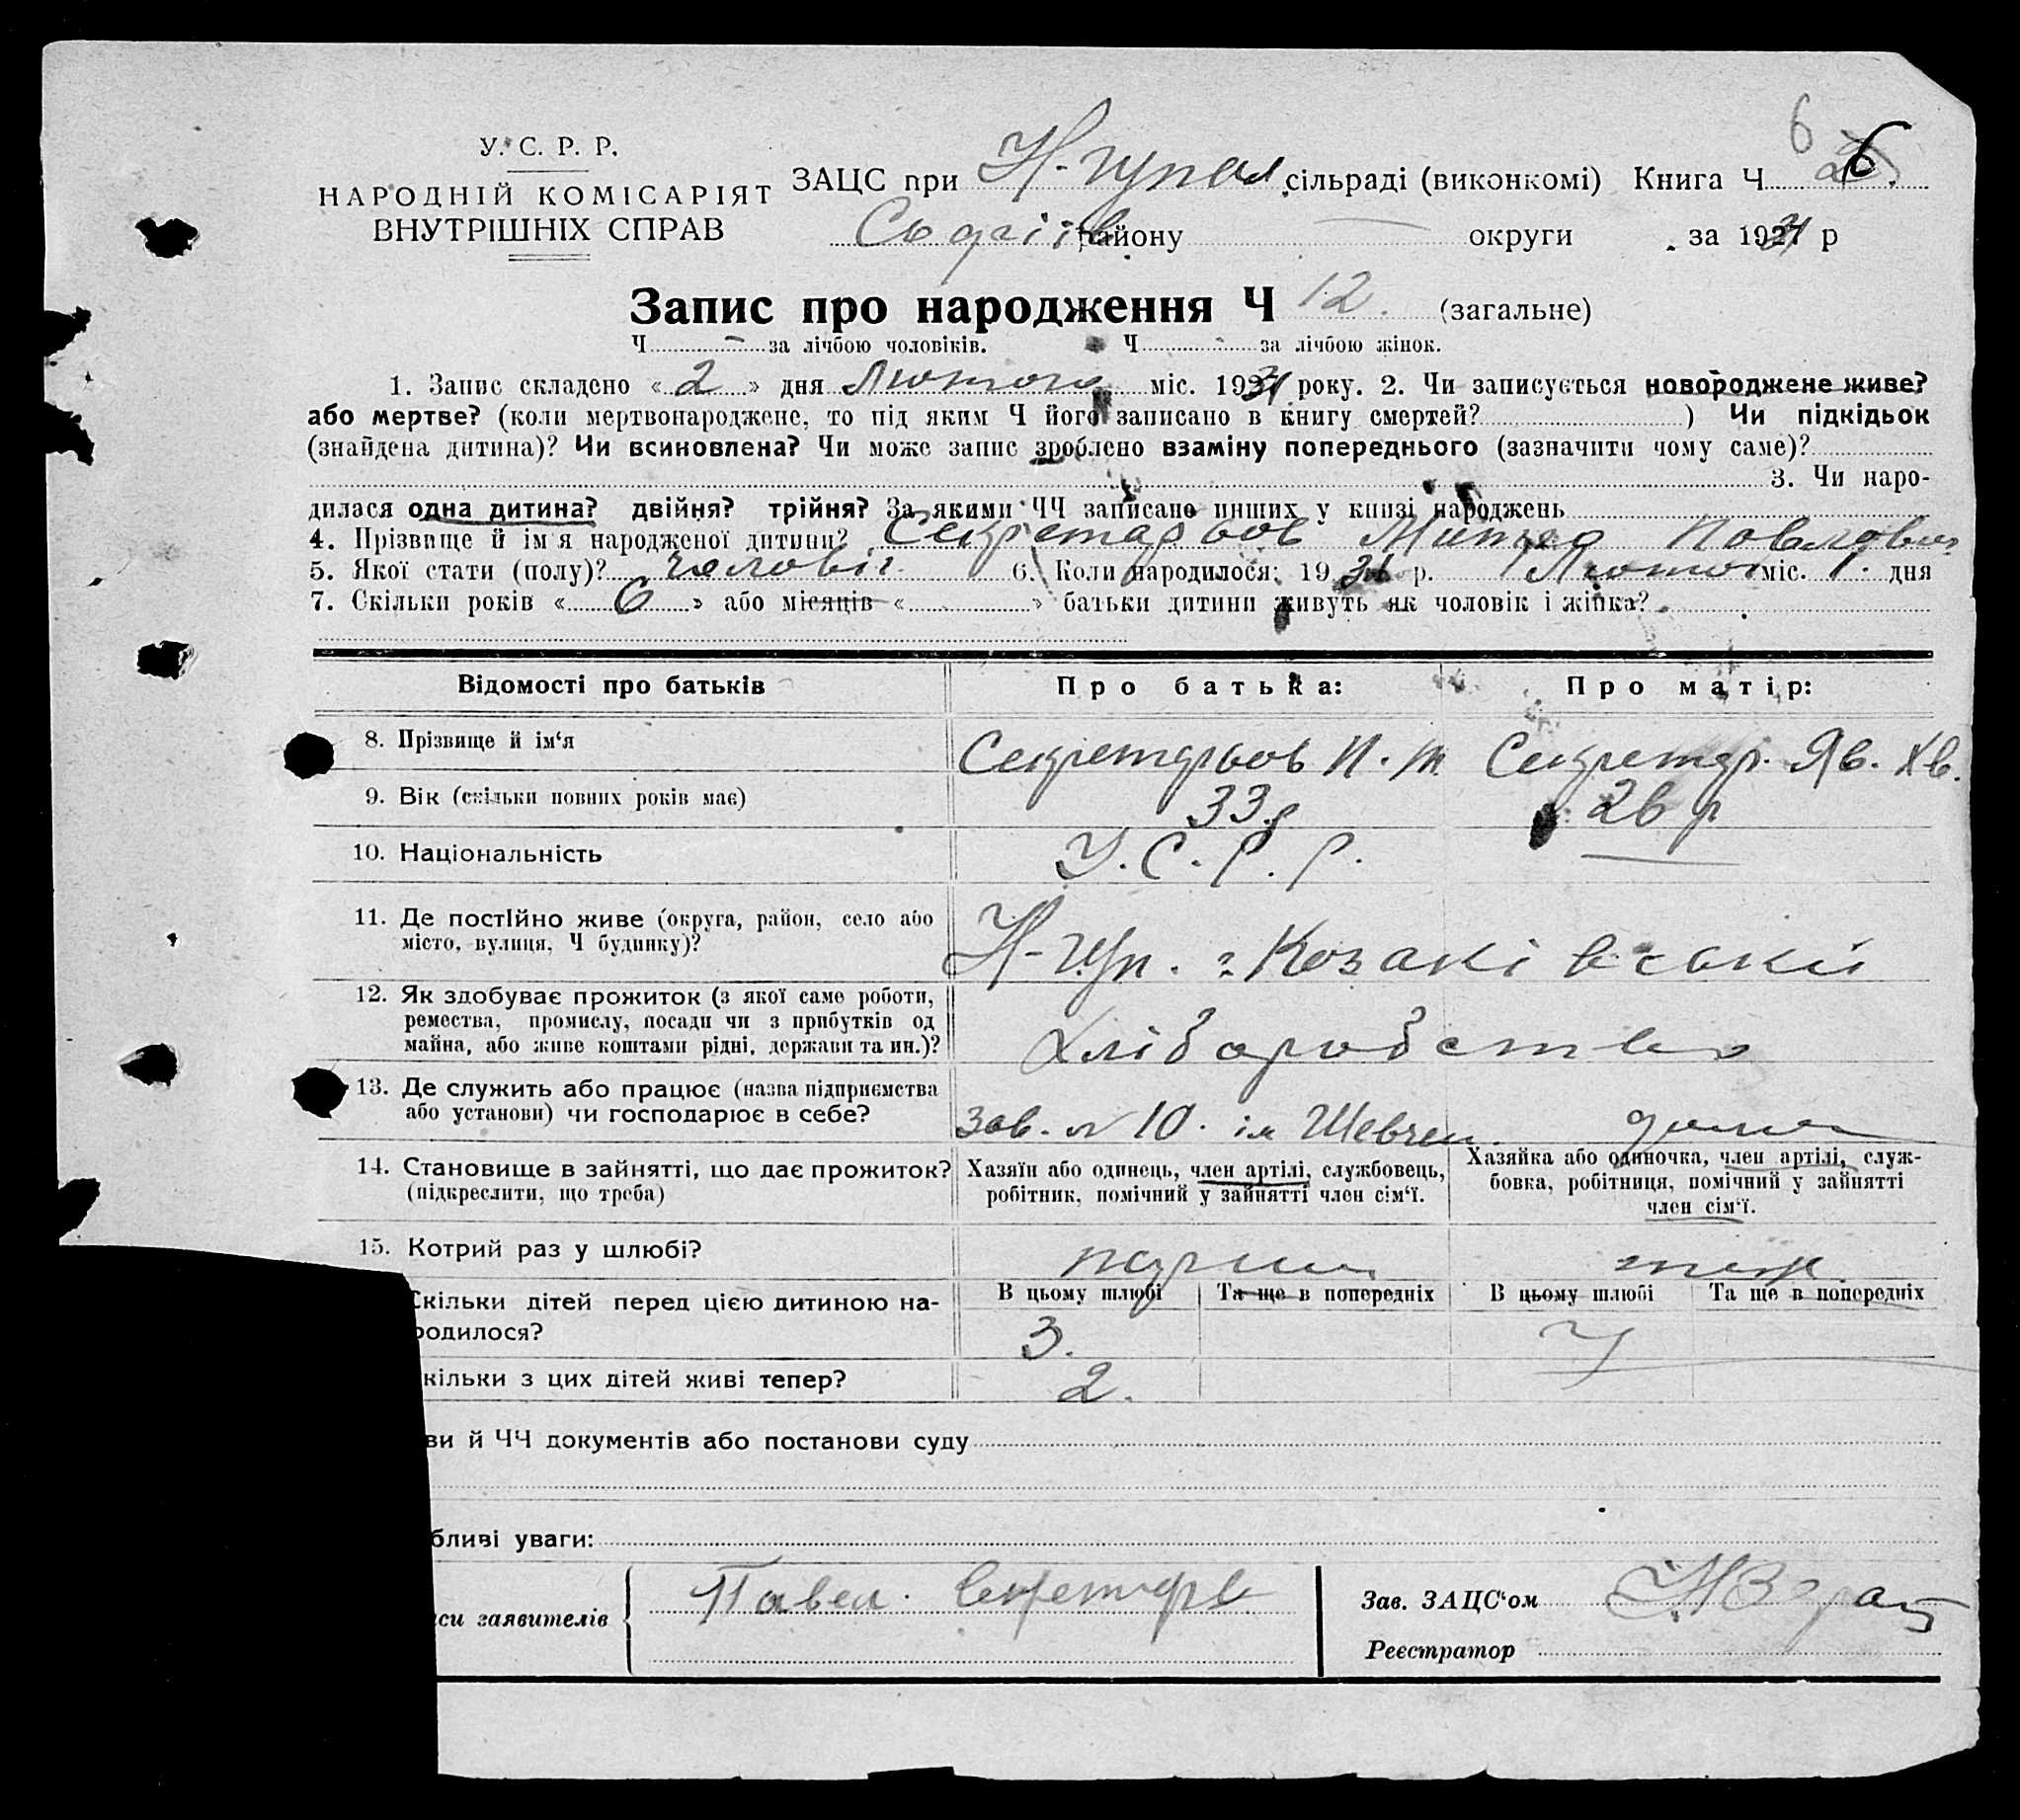 6
У. С. Р. Р.
НАРОДНІЙ КОМІСАРІЯТ
ВНУТРІШНІХ СПРАВ
ЗАЦС при сільраді (виконкомі) Книга Ч 6
району округи за 1931 р
Запис про народження Ч 12. (загальне)
Ч — за лічбою чоловіків. Ч за лічбою жінок.
1. Запис складено « 2 » дня Лютого міс. 1931 року. 2. Чи записується новороджене живе?
або мертве? (коли мертвонароджене, то під яким Ч його записано в книгу смертей? ) Чи підкідьок
(знайдена дитина)? Чи всиновлена? Чи може запис зроблено взаміну попереднього (зазначити чому саме)?
3. Чи наро-
дилася одна дитина? двійня? трійня? За якими ЧЧ записано инших у книзі народжень
4. Прізвище й ім'я народженої дитини? Секретарьов Павлович
5. Якої стати (полу)? 6. Коли народилося: 1931 р. Лютого міс. 1. дня
7. Скільки років « 6 » або місяців « » батьки дитини живуть як чоловік і жінка?
Відомості про батьків
Про батька:
Про матір:
8. Прізвище й ім'я
Секретарьов П. М Секретар. Яв. Хв.
9. Вік (скільки повних років має)
33 р 26 р
10. Національність
У. С. Р. Р. —
11. Де постІйно живе (округа, район, село або
місто, вулиця, Ч будинку)?
12. Як здобуває прожиток (з якої саме роботи,
ремества, промислу, посади чи з прибутків од
майна, або живе коштами рідні, держави та ин.)?
Хліборобство
13. Де служить або працює (назва підприємства
або установи) чи господарює в себе?
10. ім Шевчен. дома
14. Становище в зайнятті, що дає прожиток?
(підкреслити, що треба)
Хазяїн або одинець, член артілі, службовець,
робітник, помічний у зайнятті член сім'ї.
Хазяйка або одиночка, член артілі, служ-
бовка, робітниця, помічний у зайнятті
член сім'ї.
15. Котрий раз у шлюбі?
Скільки дітей перед цією дитиною на-
родилося?
В цьому шлюбі Та ще в попередніх В цьому шлюбі Та ще в попередніх
3.
кільки з цих дітей живі тепер?
2.
ви й ЧЧ документів або постанови суду
бливі уваги:
си заявителів
Павел
Зав. ЗАЦС'ом
Реєстратор